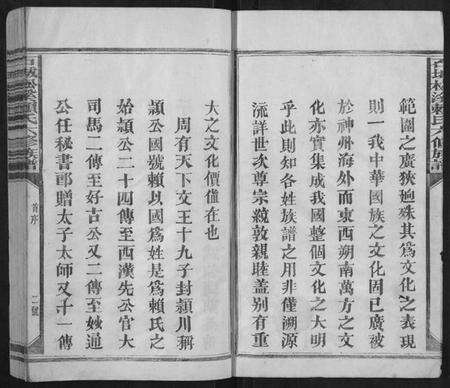 範圍之廣狹逈殊其爲文化之表現
則一我中華國族之文化固已廣被
於神州海外而東西朔南萬方之文
化亦實集成我國整個文化之大明
乎此則知各姓族譜之用非僅溯源
流詳世次尊宗統敦親睦蓋别有重
大之文化價值在也
周有天下文王十九子封潁川稱
潁公國號賴以國爲姓是爲賴氏之
始潁公二十四傳至西漢先公官大
司馬二傳至好古公又二傳至妙通
公任秘書郎贈太子太師又十一傳
首序
二號